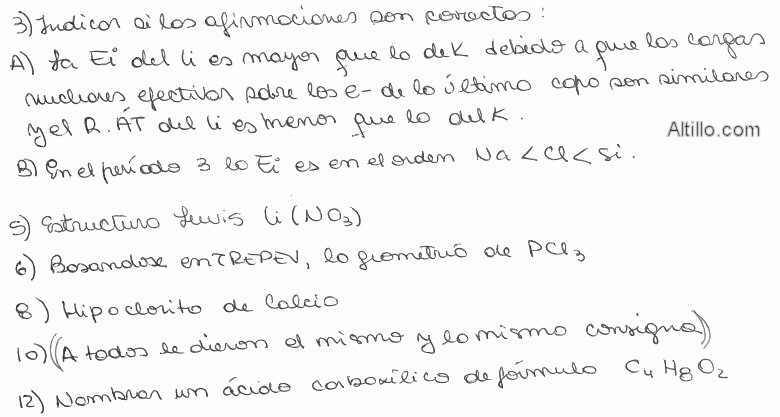 3) Indicar si las afirmaciones son correctas :
A) La Ei del Li es mayor que la de K debido a que las cargas
nucleares efectivas sobre los e- de la última capa son similares
y el R.ÁT del Li es menor que la del K.
Altillo.com
B) En el período 3 la Ei es en el orden Na < Cl < Si.
5) Estructura Lewis Li (NO3)
6) Basandose en TREPEV, la geometría de PCl3
8) Hipoclorito de Calcio
10) ((A todos le dieron el mismo y la misma consigna))
12) Nombrar un ácido carboxílico de fórmula C4 H8 O2